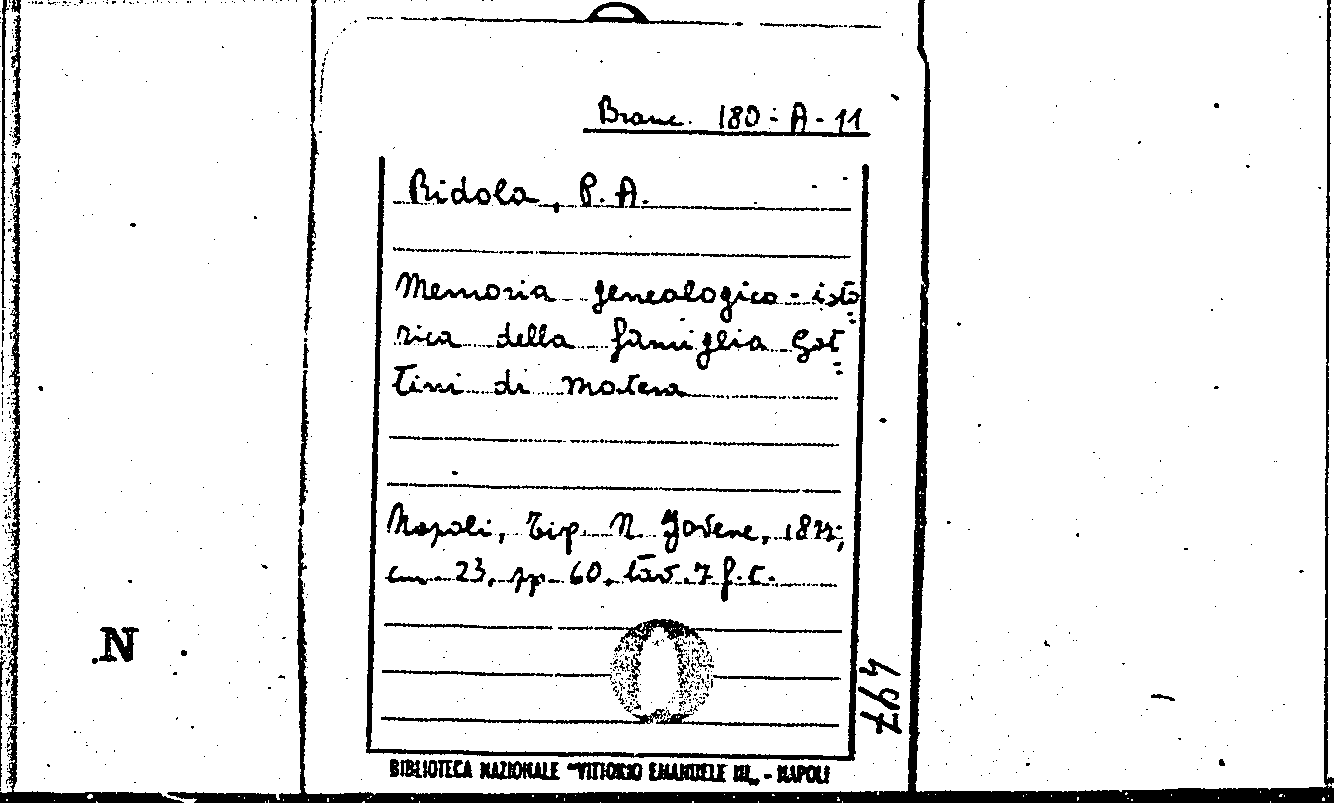 Branc. 180 - A - 11
Ridola, P. A.
Memoria genealogico - isto=
rica della famiglia Gat=
tini di Matera
Napoli, Tip. N. Jovene, 1877;
cm 23, pp 60, tav. 7 f. t.
497
N
BIBLIOTECA NAZIONALE "VITTORIO EMANUELE III„ - NAPOLI